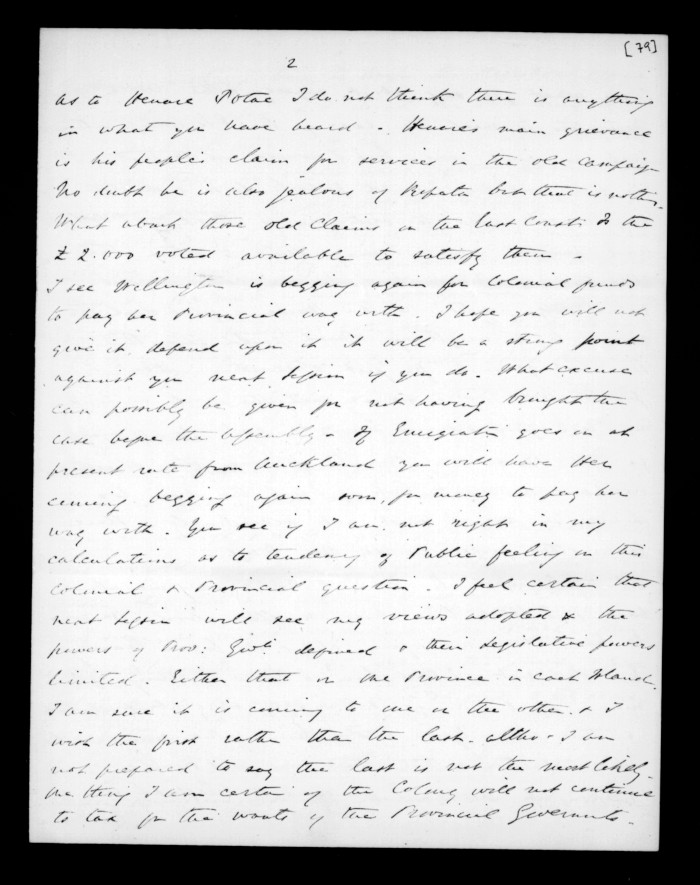 [79]
2
as to Henare Potae I do not think there is anything
in what you have heard. Henare's main grievance
is his people's claim for services in the old Campaign
No doubt he is also jealous of Ropata but that is nothing.
What about those old Claims on the East Coast & the
£2.000 voted available to satisfy them.
I see Wellington is begging again for Colonial funds
to pay her Provincial way with. I hope you will not
give it, depend upon it it will be a strong point
against you next Session if you do. What excuse
can possibly be given for not having brought the
case before the Assembly. If Emigration goes on at
present rate from Auckland you will have Her
coming begging again soon, for money to pay her
way with. You see if I am not right in my
calculations as to tendency of Public feeling on this
Colonial & Provincial question. I feel certain that
next Session will see my views adopted & the
powers of Prov: Govts defined & their Legislative powers
limited. Either that or one Province in each Island.
I am sure it is coming to one or the other. & I
wish the first rather than the last. altho' I am
not prepared to say the last is not the most likely.
One thing I am certain of the Colony will not continue
to tax for the wants of the Provincial Governments.